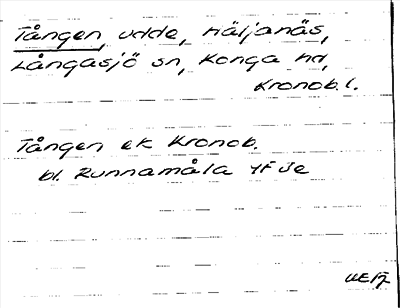 Tången, udde, Häljanäs,
Långasjö sn, Konga hd,
Kronob. l.
Tången ek Kronob.
bl. Runnamåla 4F Je